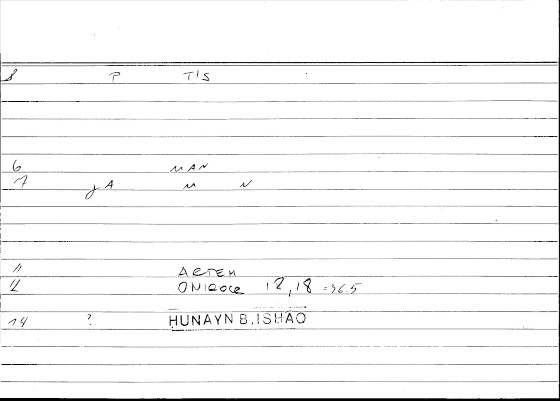 8 P TIS
6 MAN
7 JA M N
11 ARTEM
12 ONIROCR 12,18 =365
14 ? HUNAYN B.ISHAO